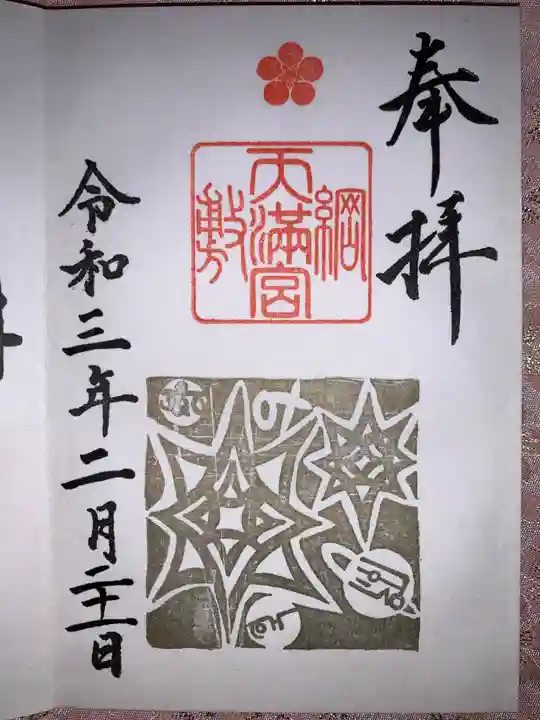 奉拝
綱敷天満宮
令和三年二月二十一日